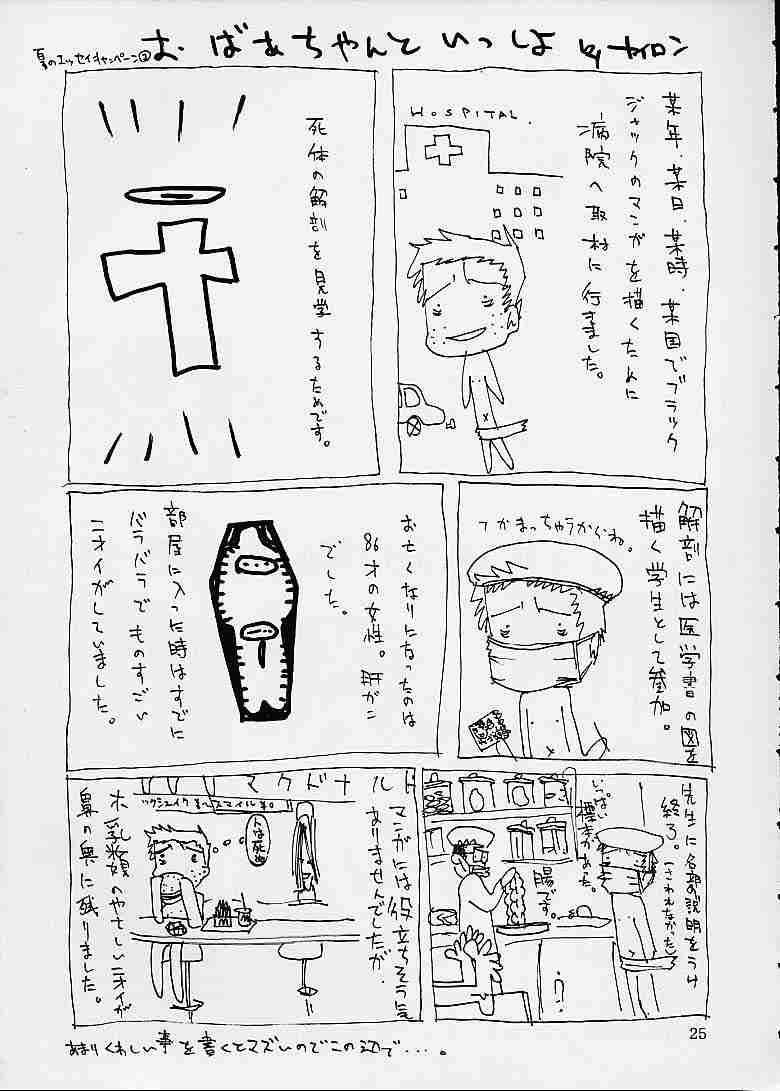 夏のエッセイキャンペーン②
おばあちゃんといっしょ by ナイロン
某年.某日.某時.某国でブラック
ジャックのマンガを描くために
病院へ取材に行きました。
HOSPITAL.
死体の解剖を見学するためです。
解剖には医学書の図を
描く学生として参加。
つかまっちゃうからね。
お亡くなりになったのは
86才の女性。肝がん
でした。
部屋に入った時はすでに
バラバラでものすごい
ニオイがしていました。
先生に各部の説明をうけ
終了。(さわれなかった)
いっぱい
標本があった。
腸です。
マクドナルド
スマイル
人は死ぬ
マンガには役立ちそうに
ありませんでしたが、
ホ乳類のやさしいニオイが
鼻の奥に残りました。
あまりくわしい事を書くとマズいのでこの辺で・・・。
25